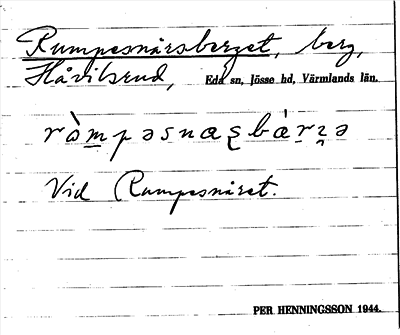 Rumpesnärsberget, berg,
Håvilsrud, Eda sn, Jösse hd, Värmlands län.
ròm̲pəsnæʂbár̲z̥ə
Vid Rumpesnäret.
PER HENNINGSSON 1944.